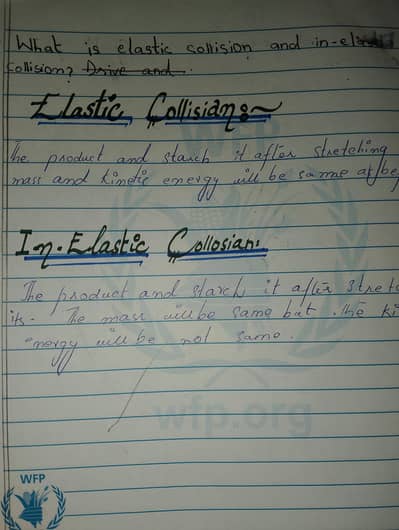 What is elastic collision and in-elastic
Collision? Drive and.
Elastic Collisian:~
The product and starch it after stretching
mass and kinetic energy will be samme as be
In-Elastic Collosian:
The product and starch it after stret
its - The mass will be same but the ki
energy will be not same.
WFP
wfp.org
WFP